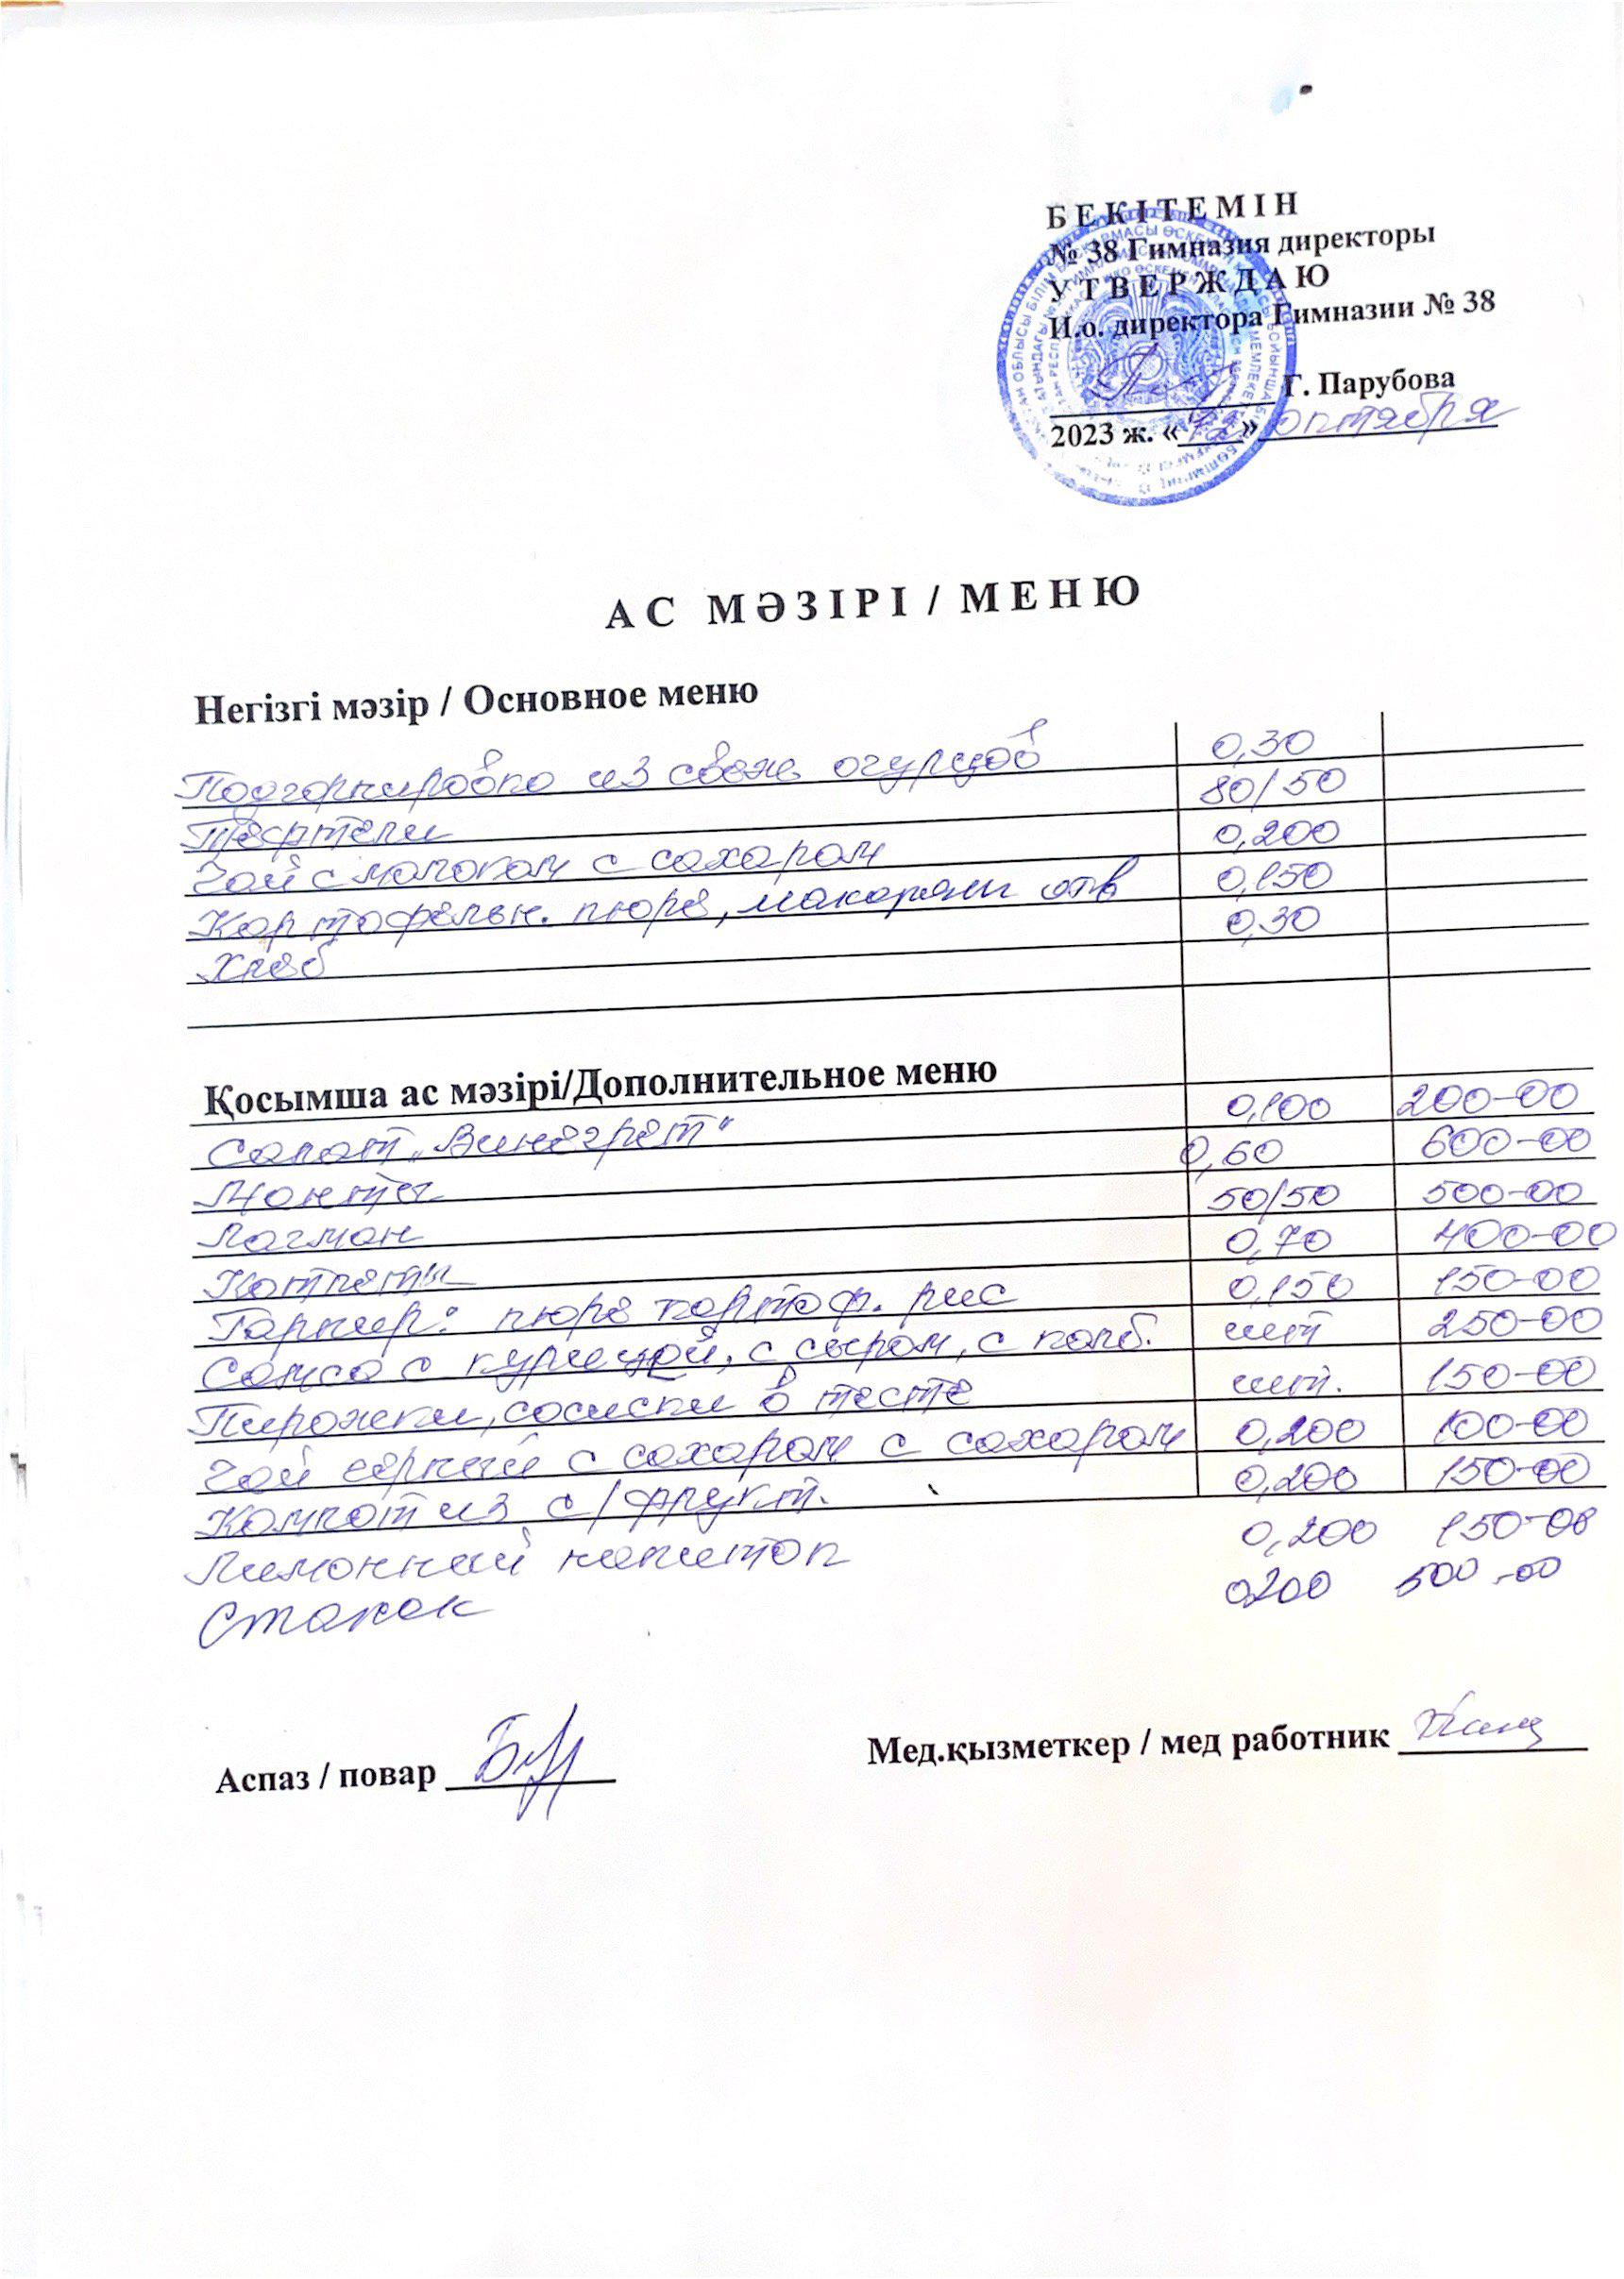 БЕКІТЕМІН
№ 38 Гимназия директоры
УТВЕРЖДАЮ
И.о. директора Гимназии № 38
Г. Парубова
2023 ж. «12» октября
АС МӘЗІРІ / МЕНЮ
Негізгі мәзір / Основное меню
Подгорнировка из свеж огурцов 0,30
Тефтели 80/50
Чай с молоком с сахаром 0,200
Картофельн. пюре, макароны отв 0,150
Хлеб 0,30
Қосымша ас мәзірі/Дополнительное меню
Салат „Винегрет" 0,100 200-00
Манты 0,60 600-00
Лагман 50/50 500-00
Котлеты 0,70 400-00
Гарнир: пюре картоф. рис 0,150 150-00
Самса с курицей, с сыром, с колб. шт 250-00
Пирожки, сосиски в тесте шт. 150-00
Чай чёрный с сахаром с сахаром 0,200 100-00
Компот из с/фрукт. 0,200 150-00
Лимонный напиток 0,200 150-00
Стакан 0200 500-00
Аспаз / повар
Мед.қызметкер / мед работник